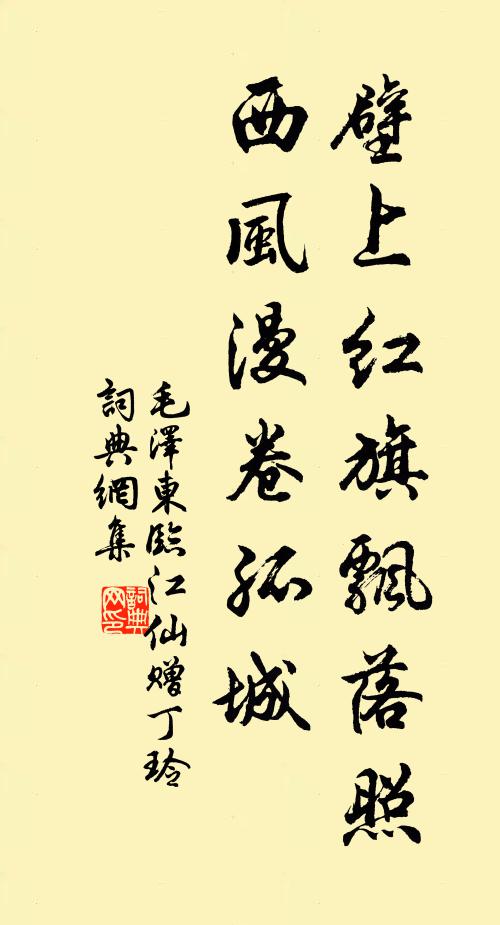 壁上红旗飄落照
西風漫卷孤城
毛澤東臨江仙赠丁玲
詞典網集
詞典网印